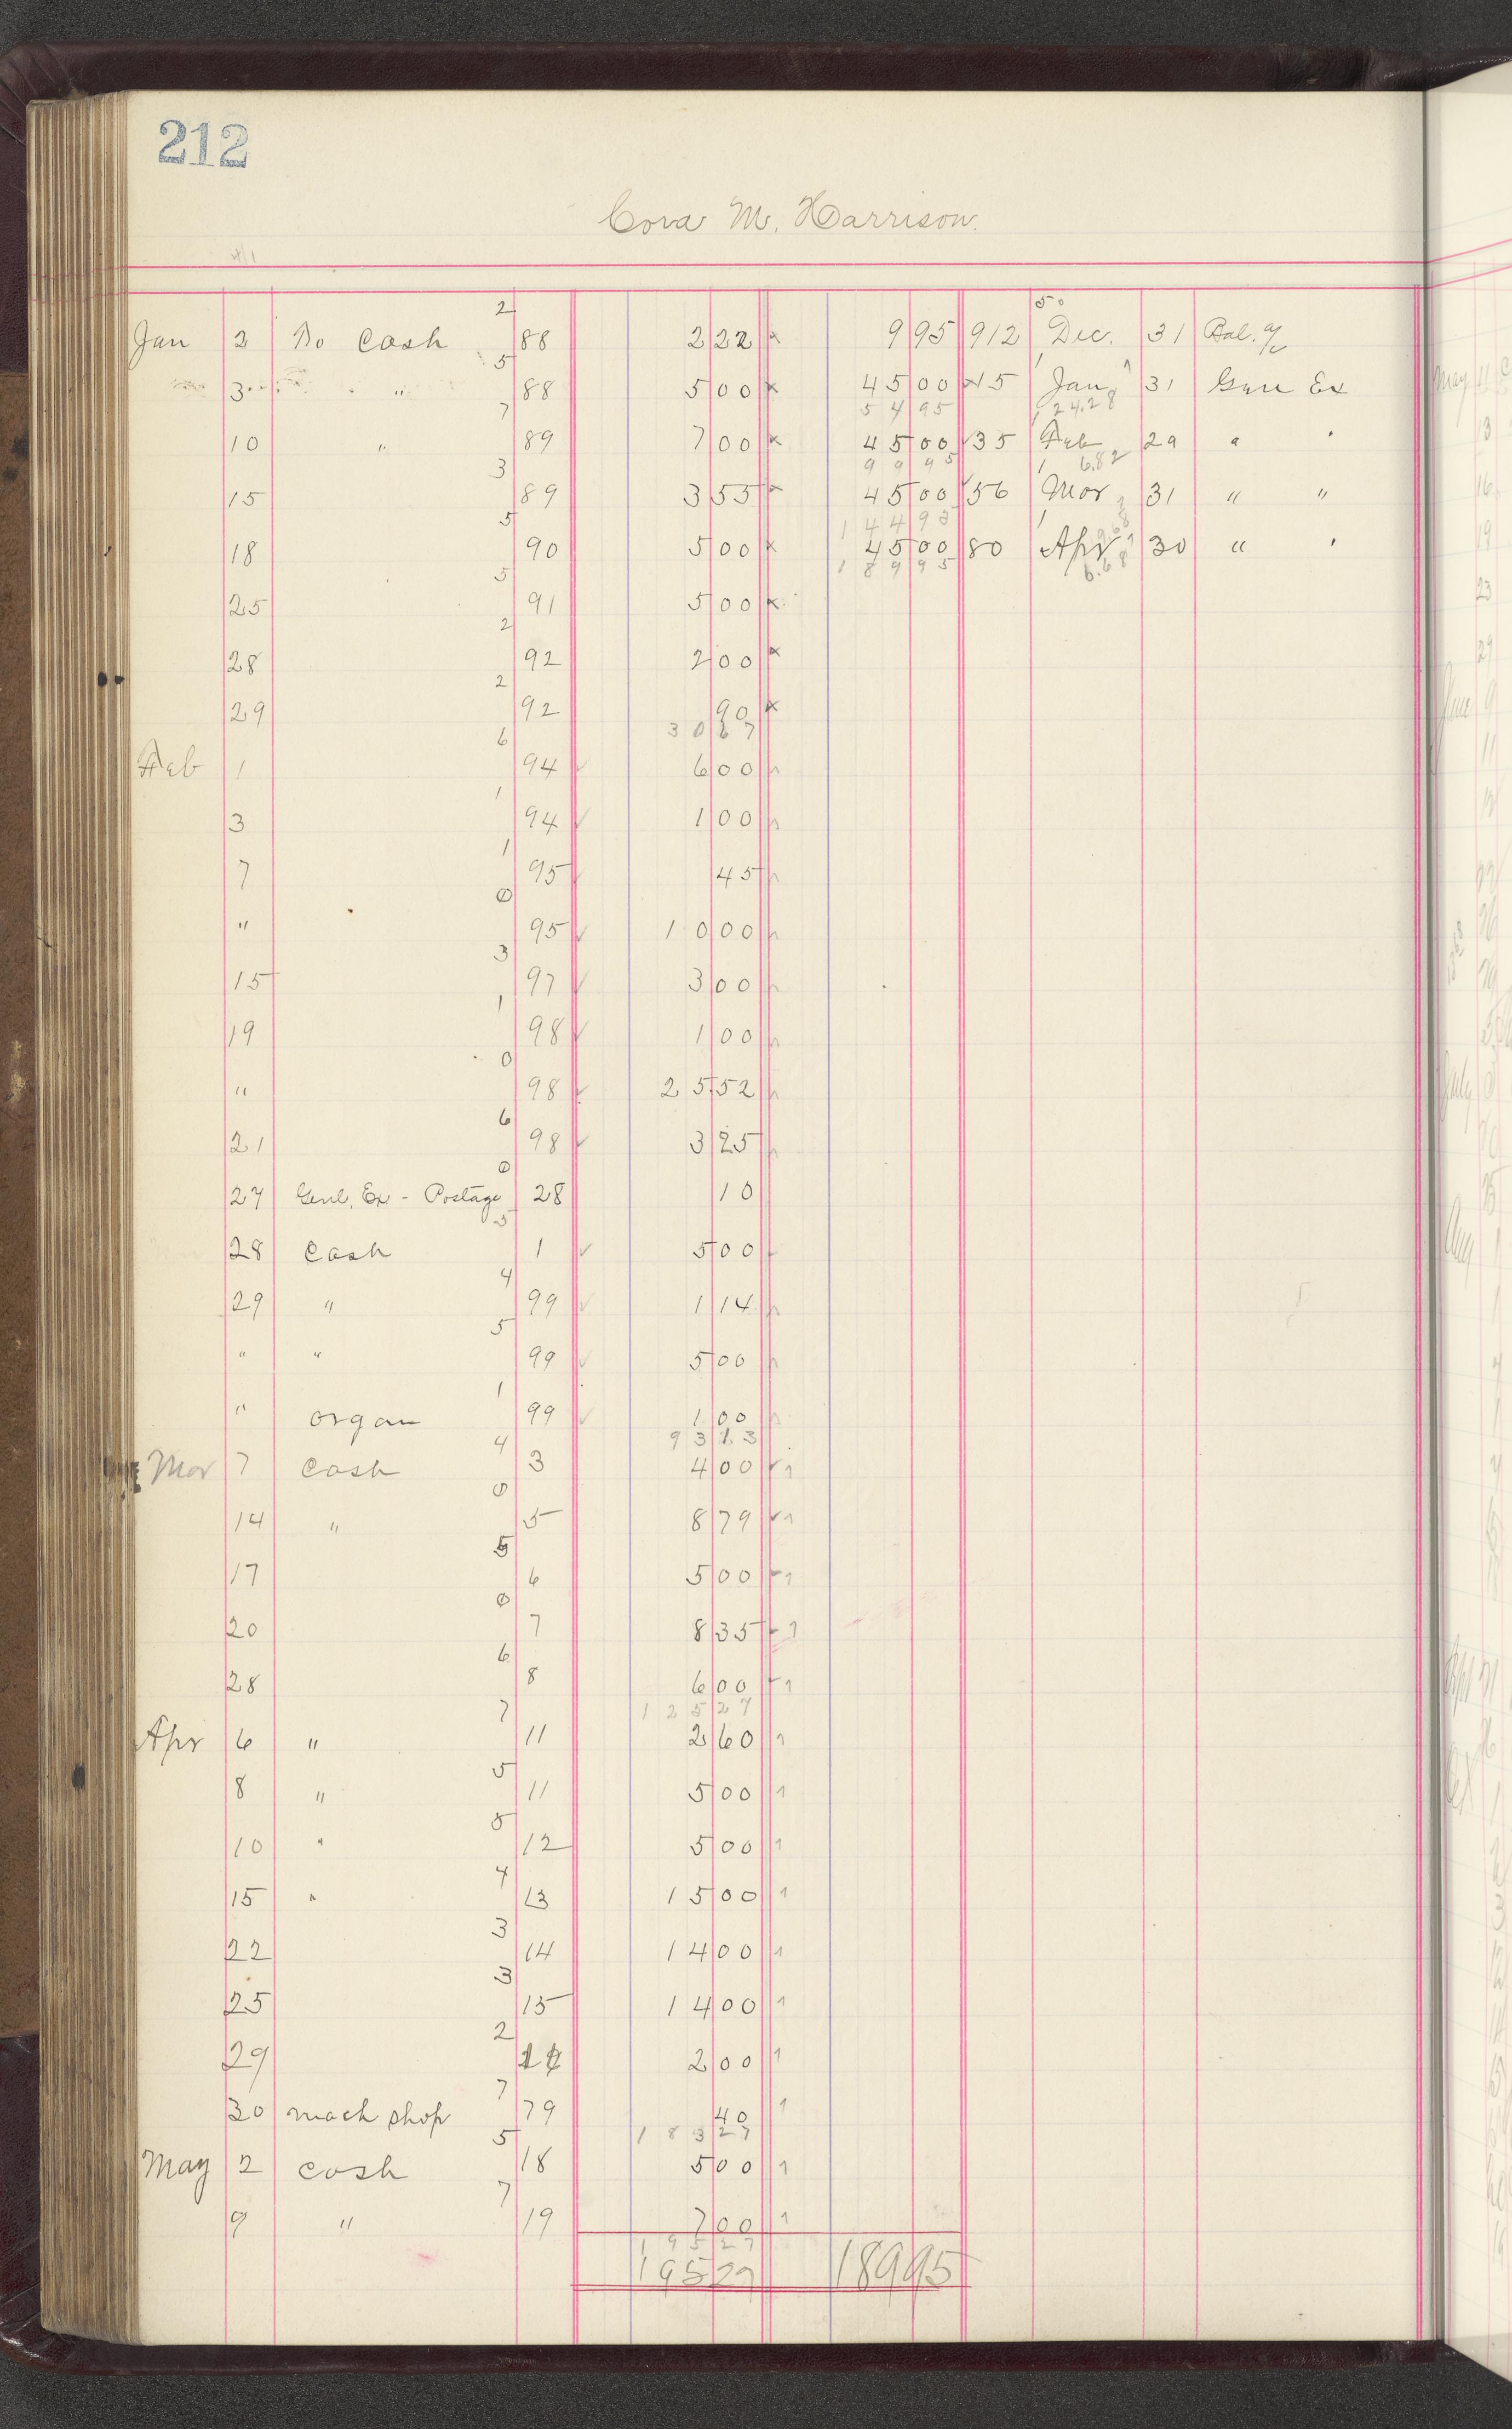 212
Cora M. Harrison.
50
2
Jan 2 To Cash 88 2 22 x 9 95 912 Dec. 31 Bal. a/c
5
3 " 88 5 00 x 45 00 x 15 Jan 31 Gen Ex
7 54 95 24.28
10 " 89 7 00 x 45 00 35 Feb 29 " "
3 99 95 6.82
15 89 3 55 45 00 56 Mar 31 " "
5 144 95
18 90 5 00 x 45 00 80 Apr 30 " "
5 189 95 6.68
25 91 5 00 x
2
28 92 2 00 x
2
29 92 90 x
6 30 67
Feb 1 94 6 00
1
3 94 1 00
1
7 95 45
0
" 95 10 00
3
15 97 3 00
1
19 98 1 00
0
" 98 25 52
6
21 98 3 25
0
27 Genl. Ex - Postage 28 10
5
28 Cash 1 5 00
4
29 " 99 1 14
5
" " 99 5 00
1
" Organ 99 1 00
4 93 13
Mar 7 Cash 3 4 00
0
14 " 5 8 79
5
17 6 5 00
0
20 7 8 35
6
28 8 6 00
7 125 27
Apr 6 " 11 2 60
5
8 " 11 5 00
5
10 " 12 5 00
4
15 " 13 15 00
3
22 14 14 00
3
25 15 14 00
2
29 2 00
7
30 mach shop 79 40
5 183 27
May 2 Cash 18 5 00
7
9 " 19 7 00
195 27
195 27 189 95